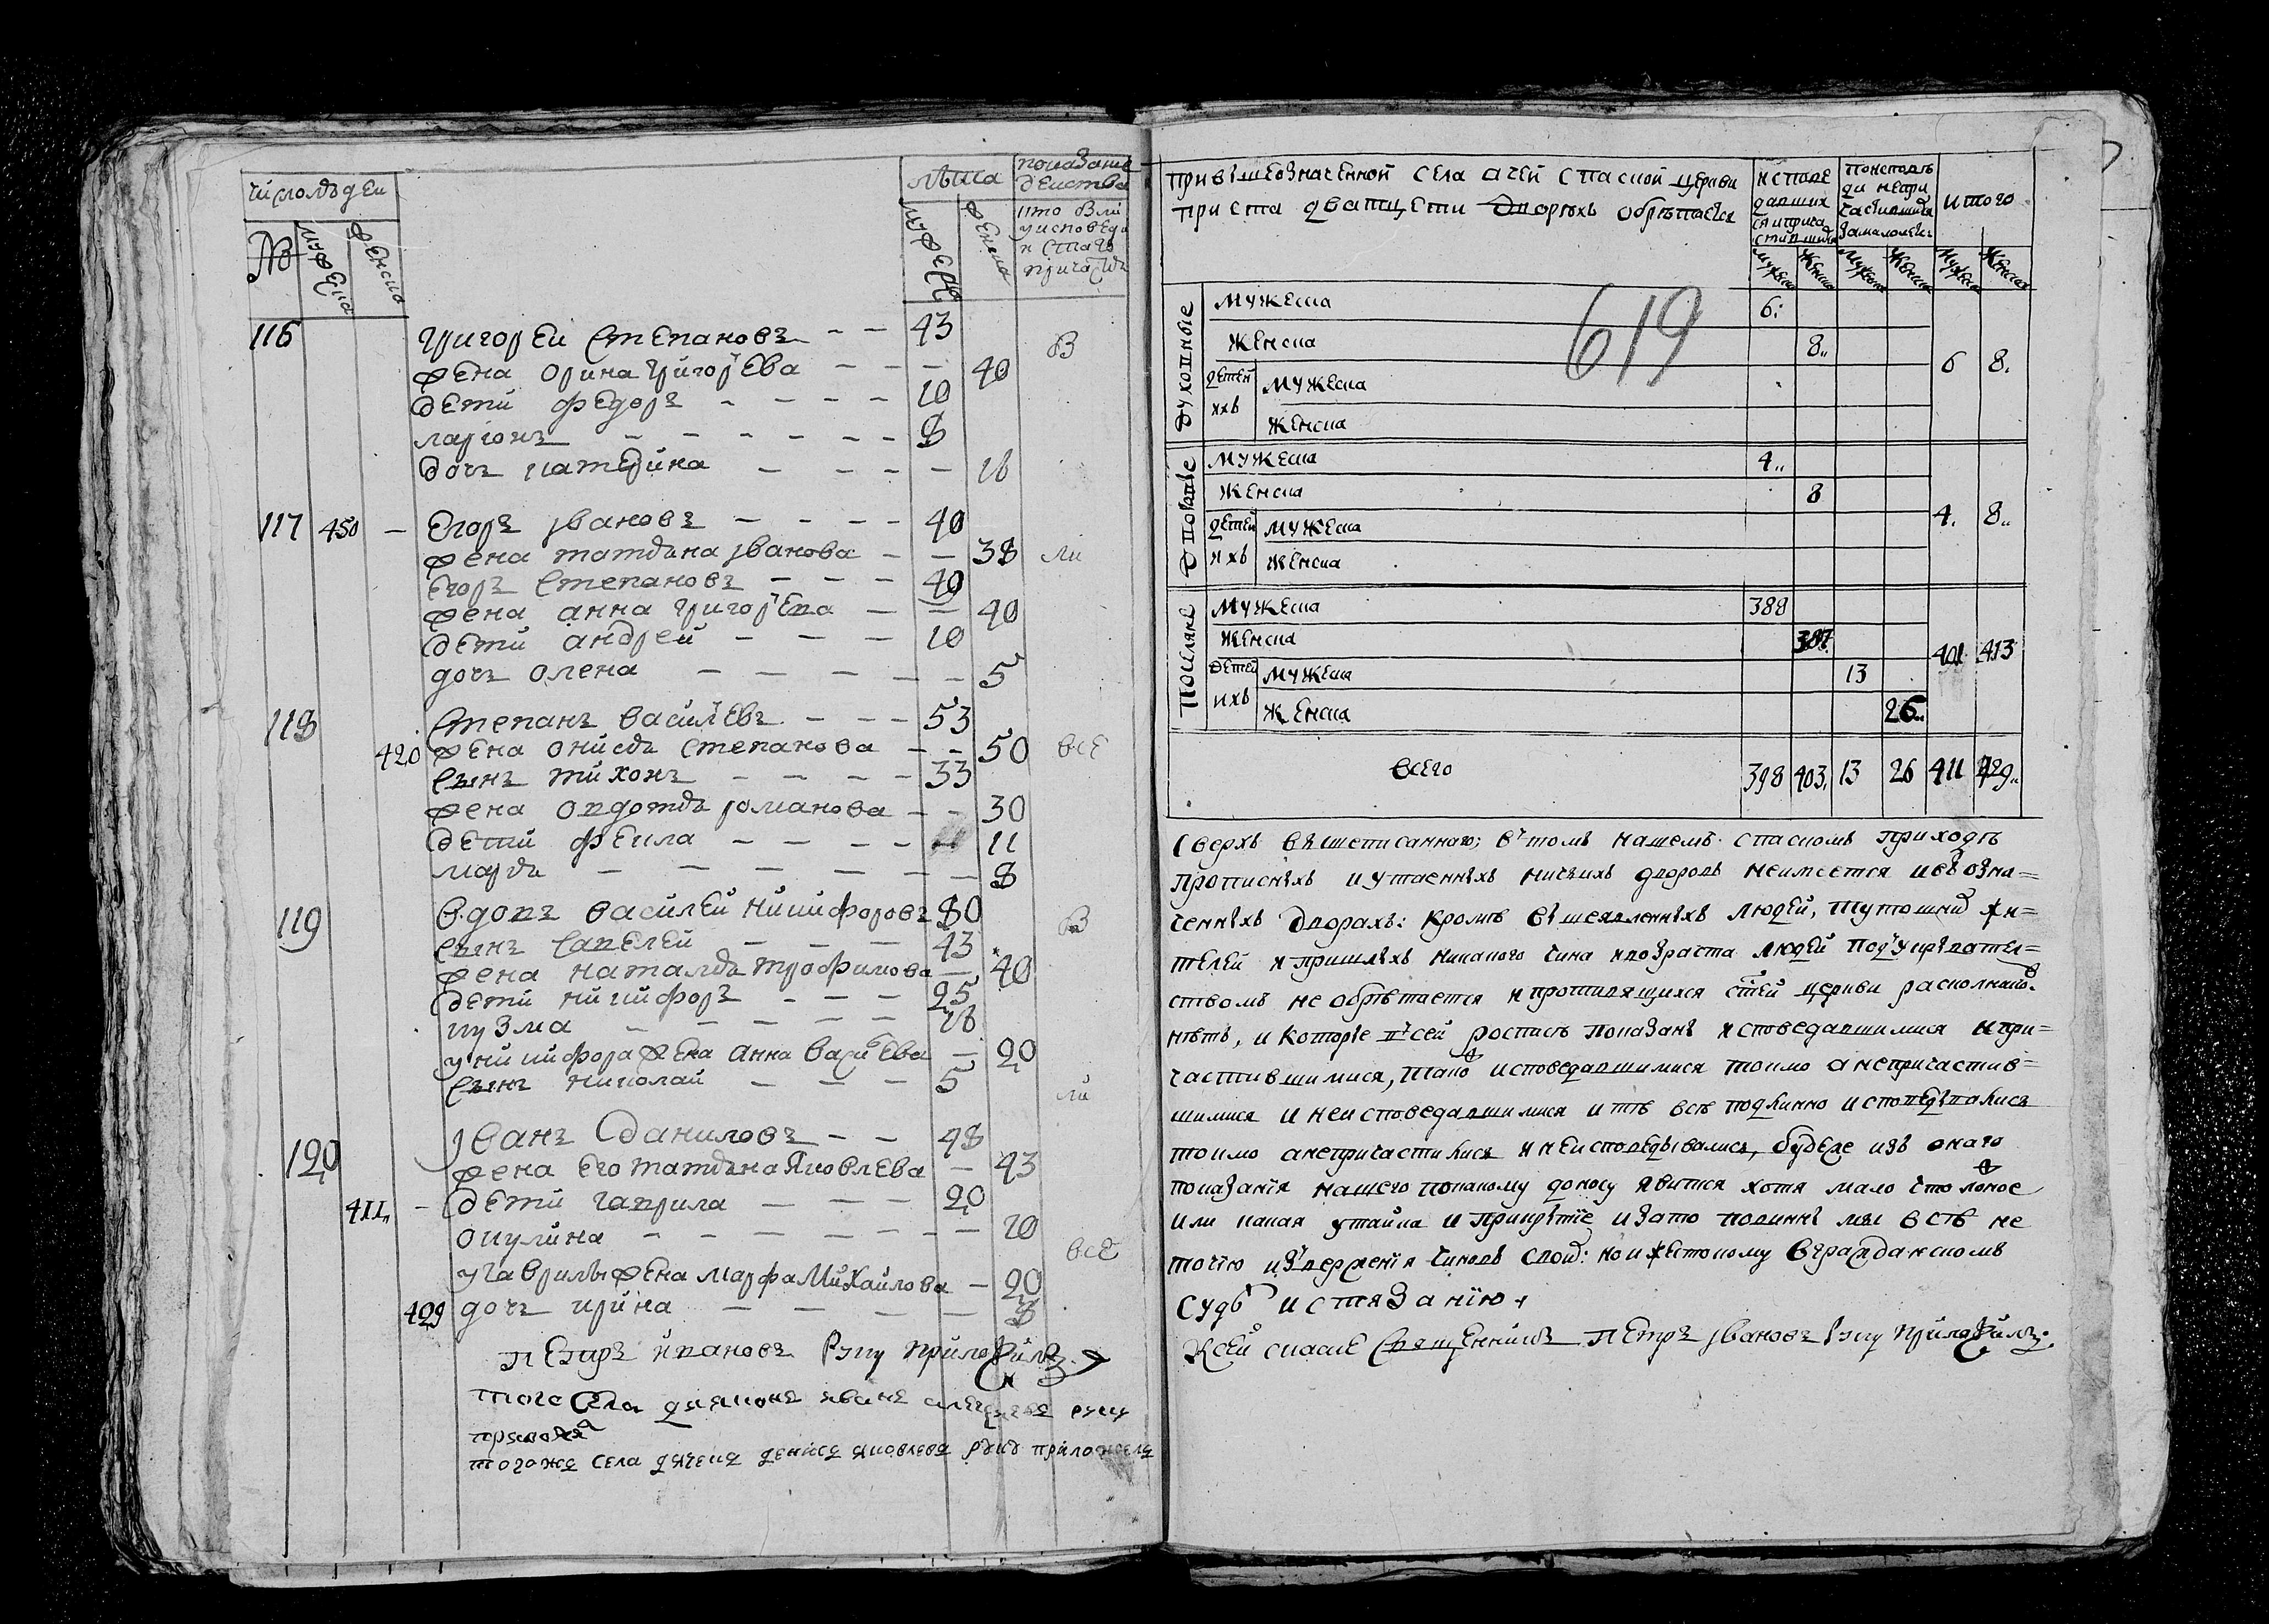 число людей
лѣта
показание
действа
№
мужеска
женска
мужеска
женска
кто были
у исповеди
и святаго
причастия
116 григорей степановъ 43
жена орина григорьева 40 В
дети федоръ 10
ларионъ 8
дочь катерина 16
117 450 егоръ ивановъ 40
жена татьяна иванова 38 ли
егоръ степановъ 40
жена анна григорьева 40
дети андрей 10
дочь олена 5
118 степанъ васильевъ 53
420 жена онисья степанова 50 все
сынъ тихонъ 33
жена овдотья романова 30
дети фекла 11
марья 8
119 вдовъ василей никифоровъ 80 В
сынъ савелей 43
жена наталья трофимова 40
дети никифоръ 25
кузма 16
у никифора жена анна васильева 20
сынъ николай 5 ли
120 иванъ даниловъ 48
жена его татьяна яковлева 43
411 дети гаврила 20
окулина 10 все
у гаврилы жена марфа михайлова 20
429 дочь ирина 3
петръ ивановъ руку приложилъ
того села дияконъ иванъ руку
приложилъ
того же села дьячекъ денисъ яковлевъ руку приложилъ
при вышеозначенной села ачей спаской церкви
при ста дватцети дворехъ обретаетца
исповедавшихся и причастившихся
по исповеди не причастившихся за малолетствомъ
итого
мужеска женска мужеска женска мужеска женска
619
духовные мужеска 6
женска 8 6 8
детей ихъ мужеска
женска
дворовые мужеска 4
женска 8 4 8
детей ихъ мужеска
женска
поселяне мужеска 388
женска 387 401 413
детей ихъ мужеска 13
женска 26
всего 398 403 13 26 411 429
сверхъ вышеписанного: в томъ нашемъ спаскомъ приходѣ
прописныхъ и утаенныхъ ничьихъ дворовъ неимеется и въ озна=
ченныхъ дворахъ: кромѣ вышеявленныхъ людей, тутошнихъ жи=
телей и пришлыхъ никакого чина и возраста людей под укрывател=
ствомъ не обретается и противящихся стей церкви расколников
нѣтъ, и которые в сей росписѣ показаны исповедавшимися и при=
частившимися, такожъ исповедавшимися токмо а непричастив=
шимися и неисповедавшимися и тѣ всѣ подлинно исповедывались
токмо анепричастились и неисповедывались, буде же изъ оного
показанїя нашего по какому доносу явится хотя мало что ложное
или какая утайка и прикрытїе и за то повинны мы всѣ не
точїю изверженїя чиновъ своих: но и жестокому в гражданскомъ
судѣ истязанїю
к сей сказке священникъ петръ ивановъ руку приложилъ